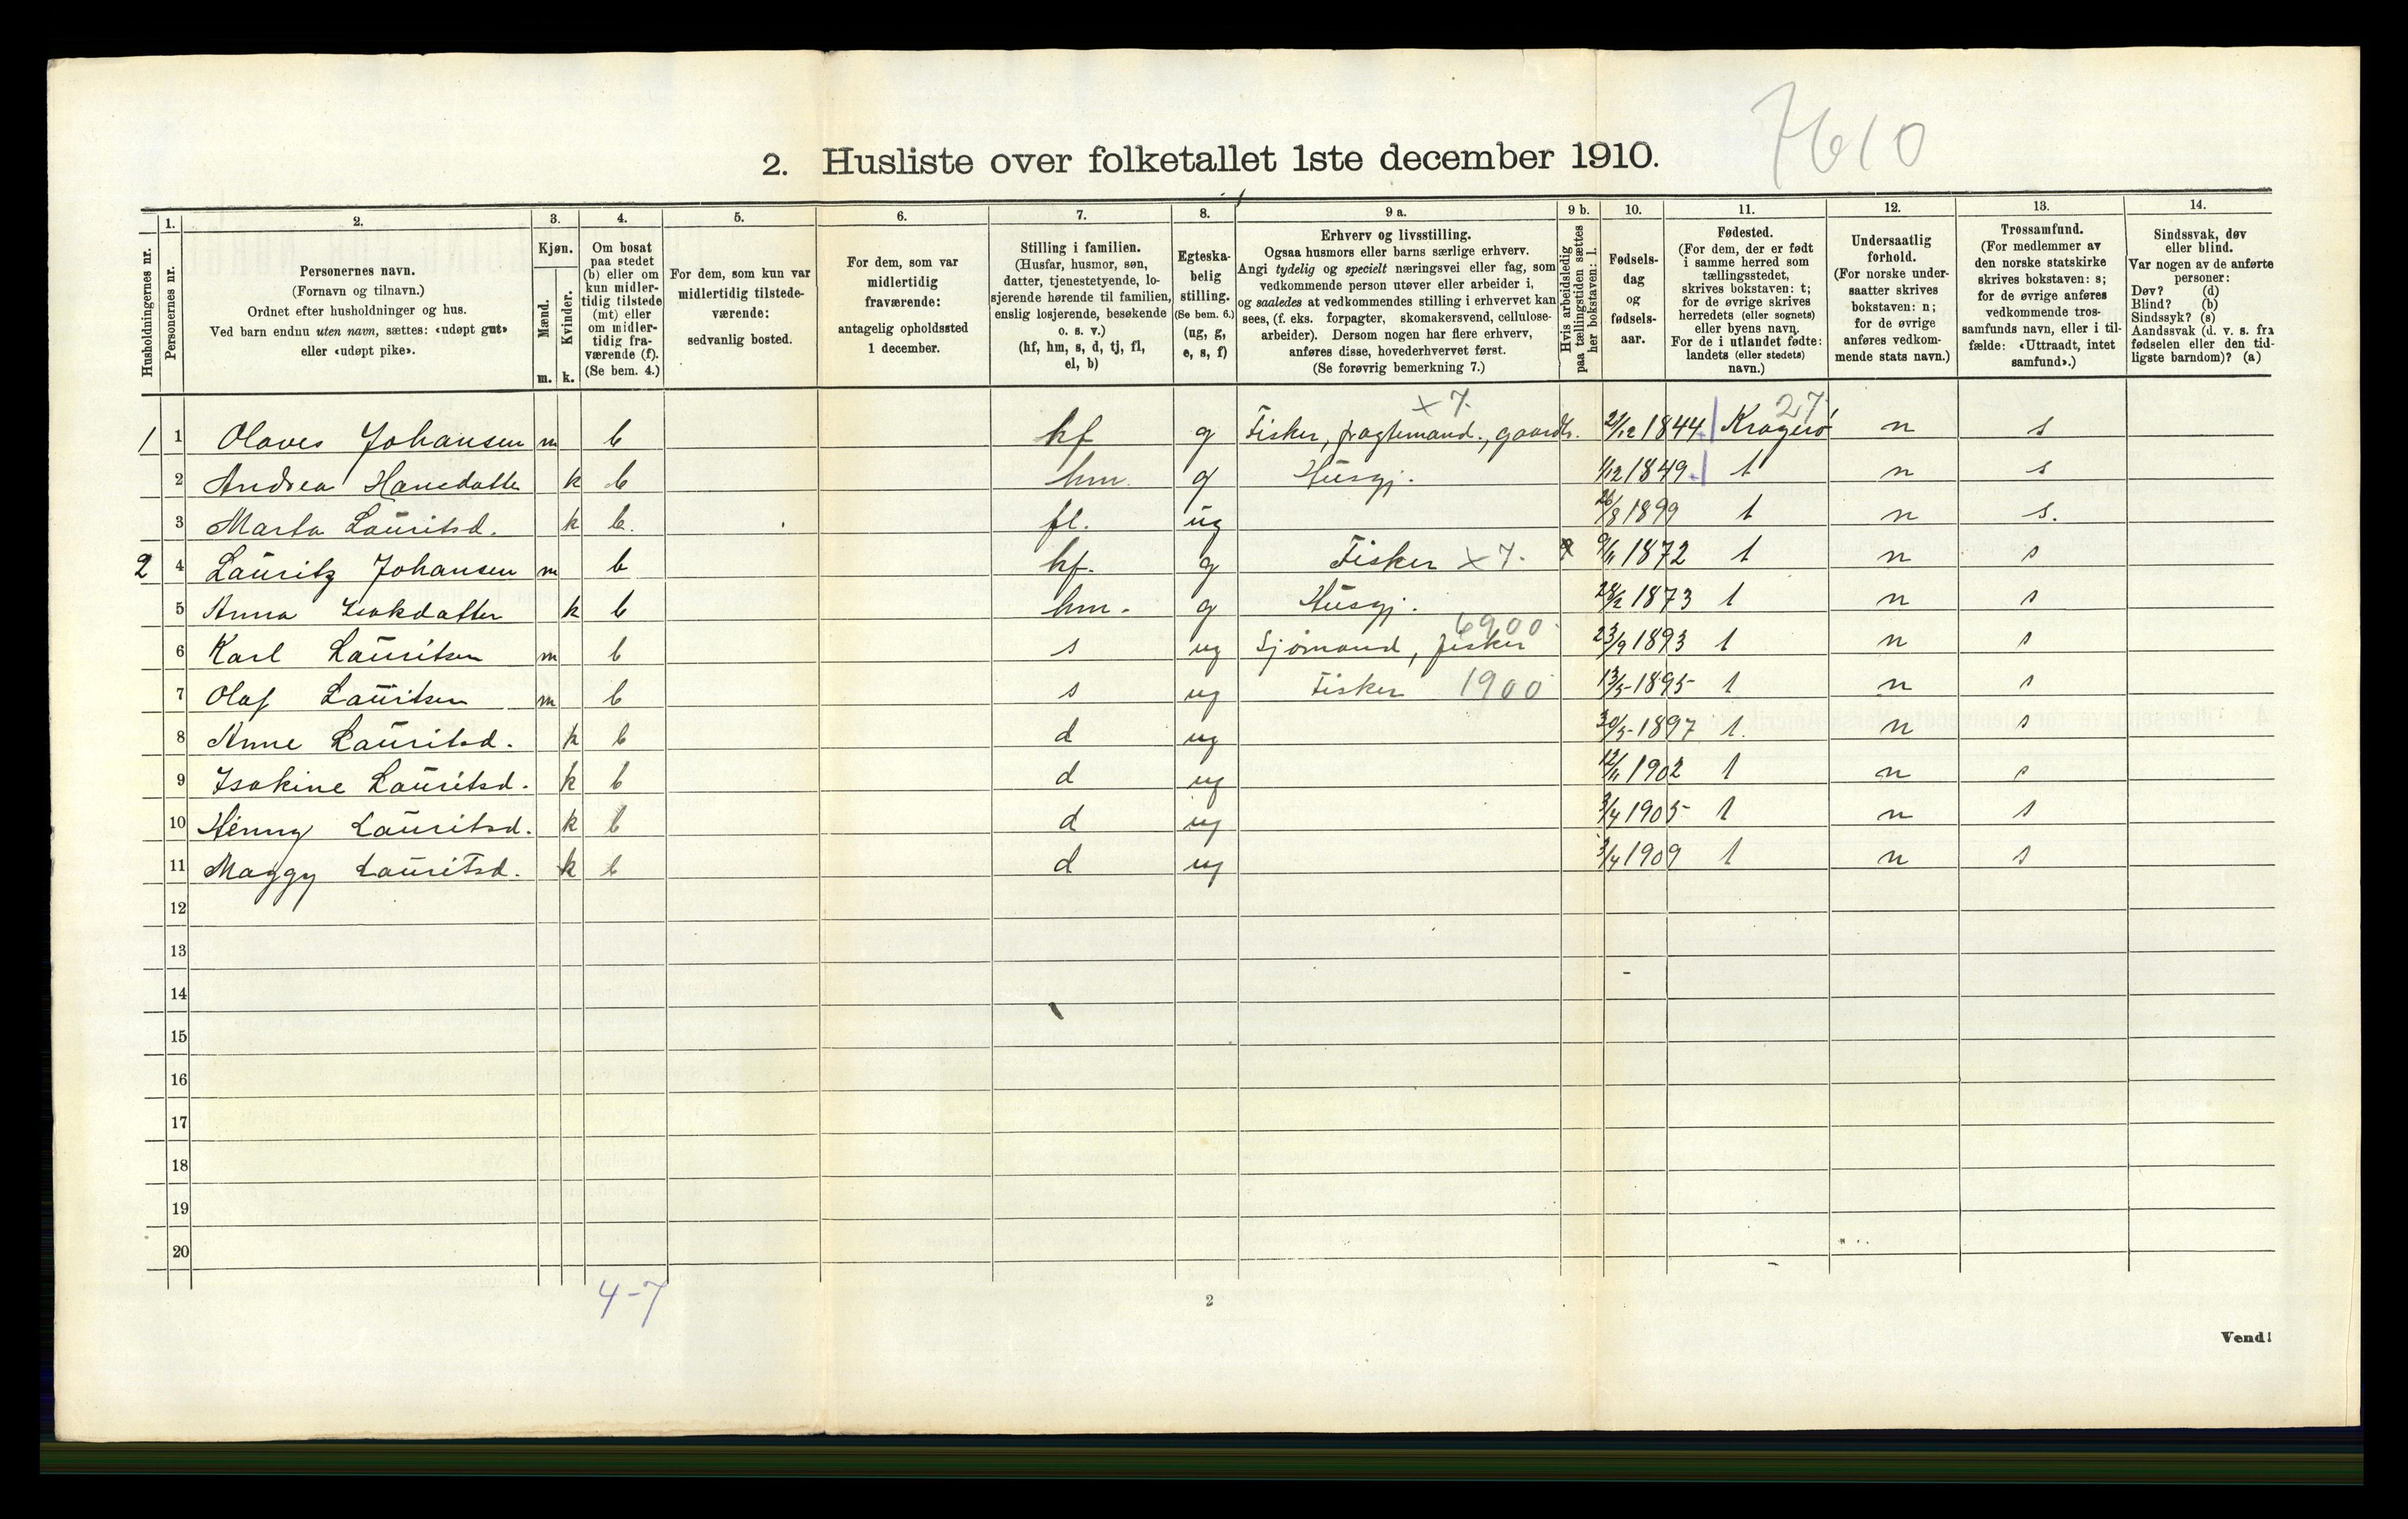 7610
2. Husliste over folketallet 1ste december 1910.
Husholdningernes nr.
1.
Personernes nr.
2.
Personernes navn.
(Fornavn og tilnavn.)
Ordnet efter husholdninger og hus.
Ved barn endnu uten navn, sættes: «udøpt gut»
eller «udøpt pike».
3.
Kjøn.
Mænd.
m.
Kvinder.
k.
4.
Om bosat
paa stedet
(b) eller om
kun midler-
tidig tilstede
(mt) eller
om midler-
tidig fra-
værende (f).
(Se bem. 4.)
5.
For dem, som kun var
midlertidig tilstede-
værende:
sedvanlig bosted.
6.
For dem, som var
midlertidig
fraværende:
antagelig opholdssted
1 december.
7.
Stilling i familien.
(Husfar, husmor, søn,
datter, tjenestetyende, lo-
sjerende hørende til familien,
enslig losjerende, besøkende
o. s. v.)
(hf, hm, s, d, tj, fl,
el, b)
8.
Egteska-
belig
stilling.
(Se bem. 6.)
(ug, g,
e, s, f)
9 a.
Erhverv og livsstilling.
Ogsaa husmors eller barns særlige erhverv.
Angi tydelig og specielt næringsvei eller fag, som
vedkommende person utøver eller arbeider i,
og saaledes at vedkommendes stilling i erhvervet kan
sees, (f. eks. forpagter, skomakersvend, cellulose-
arbeider). Dersom nogen har flere erhverv,
anføres disse, hovederhvervet først.
(Se forøvrig bemerkning 7.)
9 b.
Hvis arbeidsledig
paa tællingstiden sættes
her bokstaven: l.
10.
Fødsels-
dag
og
fødsels-
aar.
11.
Fødested.
(For dem, der er født
i samme herred som
tællingsstedet,
skrives bokstaven: t;
for de øvrige skrives
herredets (eller sognets)
eller byens navn.
For de i utlandet fødte:
landets (eller stedets)
navn.)
12.
Undersaatlig
forhold.
(For norske under-
saatter skrives
bokstaven: n;
for de øvrige
anføres vedkom-
mende stats navn.)
13.
Trossamfund.
(For medlemmer av
den norske statskirke
skrives bokstaven: s;
for de øvrige anføres
vedkommende tros-
samfunds navn, eller i til-
fælde: «Uttraadt, intet
samfund».)
14.
Sindssvak, døv
eller blind.
Var nogen av de anførte
personer:
Døv? (d)
Blind? (b)
Sindssyk? (s)
Aandssvak (d. v. s. fra
fødselen eller den tid-
ligste barndom)? (a)
x 7. 27
1 1 Olaves Johansen m b hf g Fisker, fragtemand., gaardb. 21/12 1844 Kragerø n s
2 Andrea Hansdatter k b hm. g Husgj. 1/12 1849 t n s
3 Marta Lauritsd. k b. fl. ug 26/8 1899 t n s.
2 4 Lauritz Johansen m b hf. g Fisker x 7. 9/11 1872 t n s
5 Anna Isakdatter k b hm. g Husgj. 28/2 1873 t n s
6900
6 Karl Lauritsen m b s ug Sjømand, fisker 23/9 1893 t n s
7 Olaf Lauritsen m b s ug Fisker 1900 13/5-1895 t n s
8 Anne Lauritsd. k b d ug 30/5-1897 t. n s
9 Isakine Lauritsd. k b d ug 12/11 1902 t n s
10 Henny Lauritsd. k b d ug 3/4 1905 t n s
11 Maggy Lauritsd. k b d ug 3/4 1909 t n s
12
13
14
15
16
17
18
19
20
4-7
2
Vend!